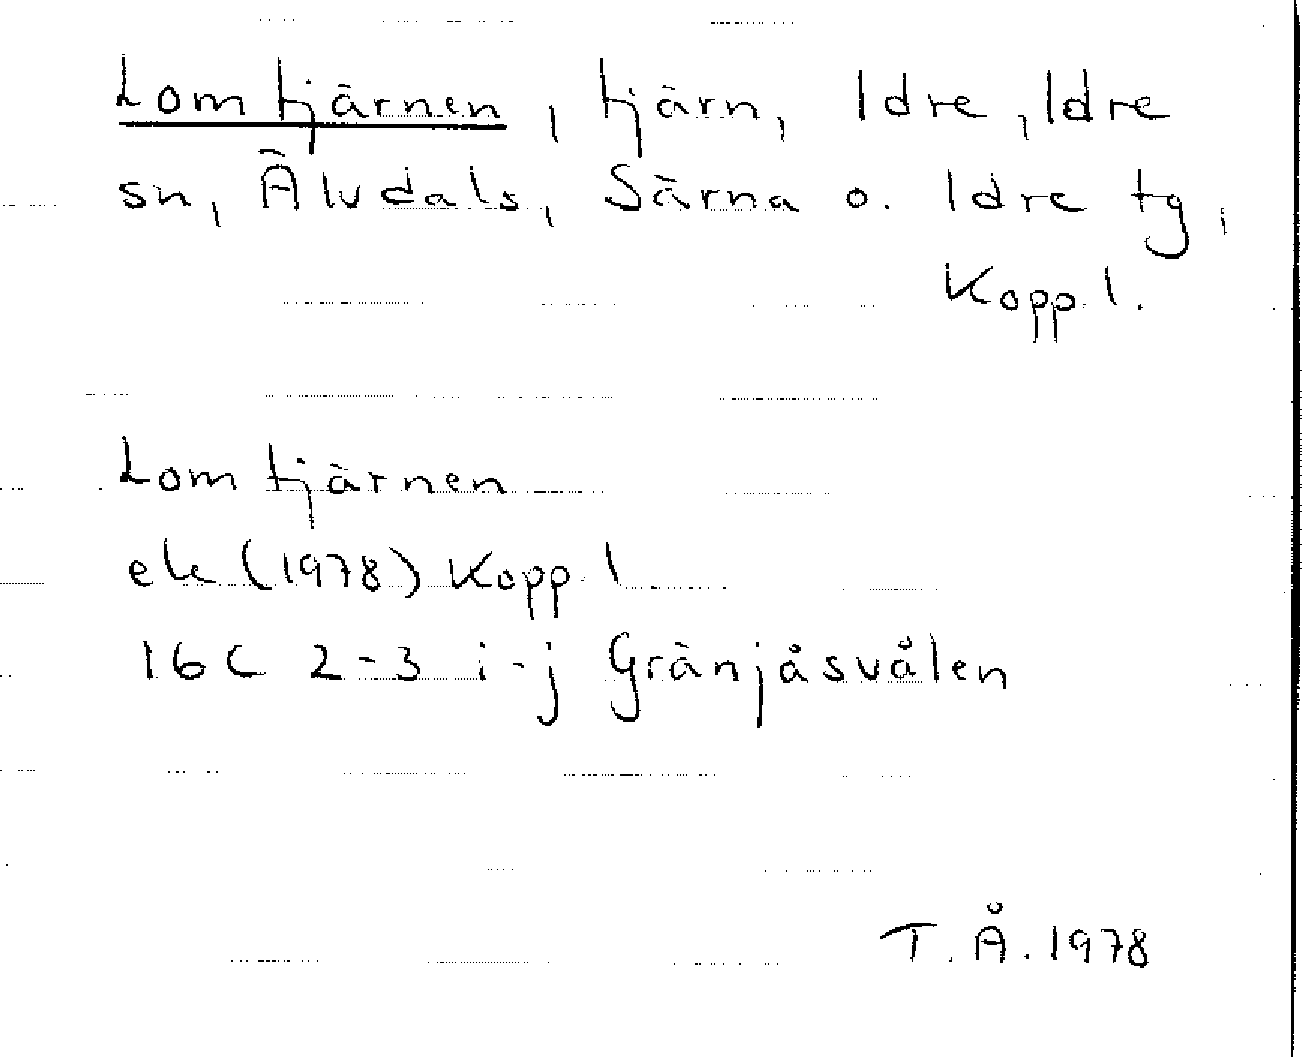 Lomtjärnen, tjärn, Idre, Idre
sn, Älvdals, Särna o. Idre tg,
Kopp. l.
Lomtjärnen
ek (1978) Kopp. l
16C 2-3 i-j Gränjåsvålen
T.Å. 1978